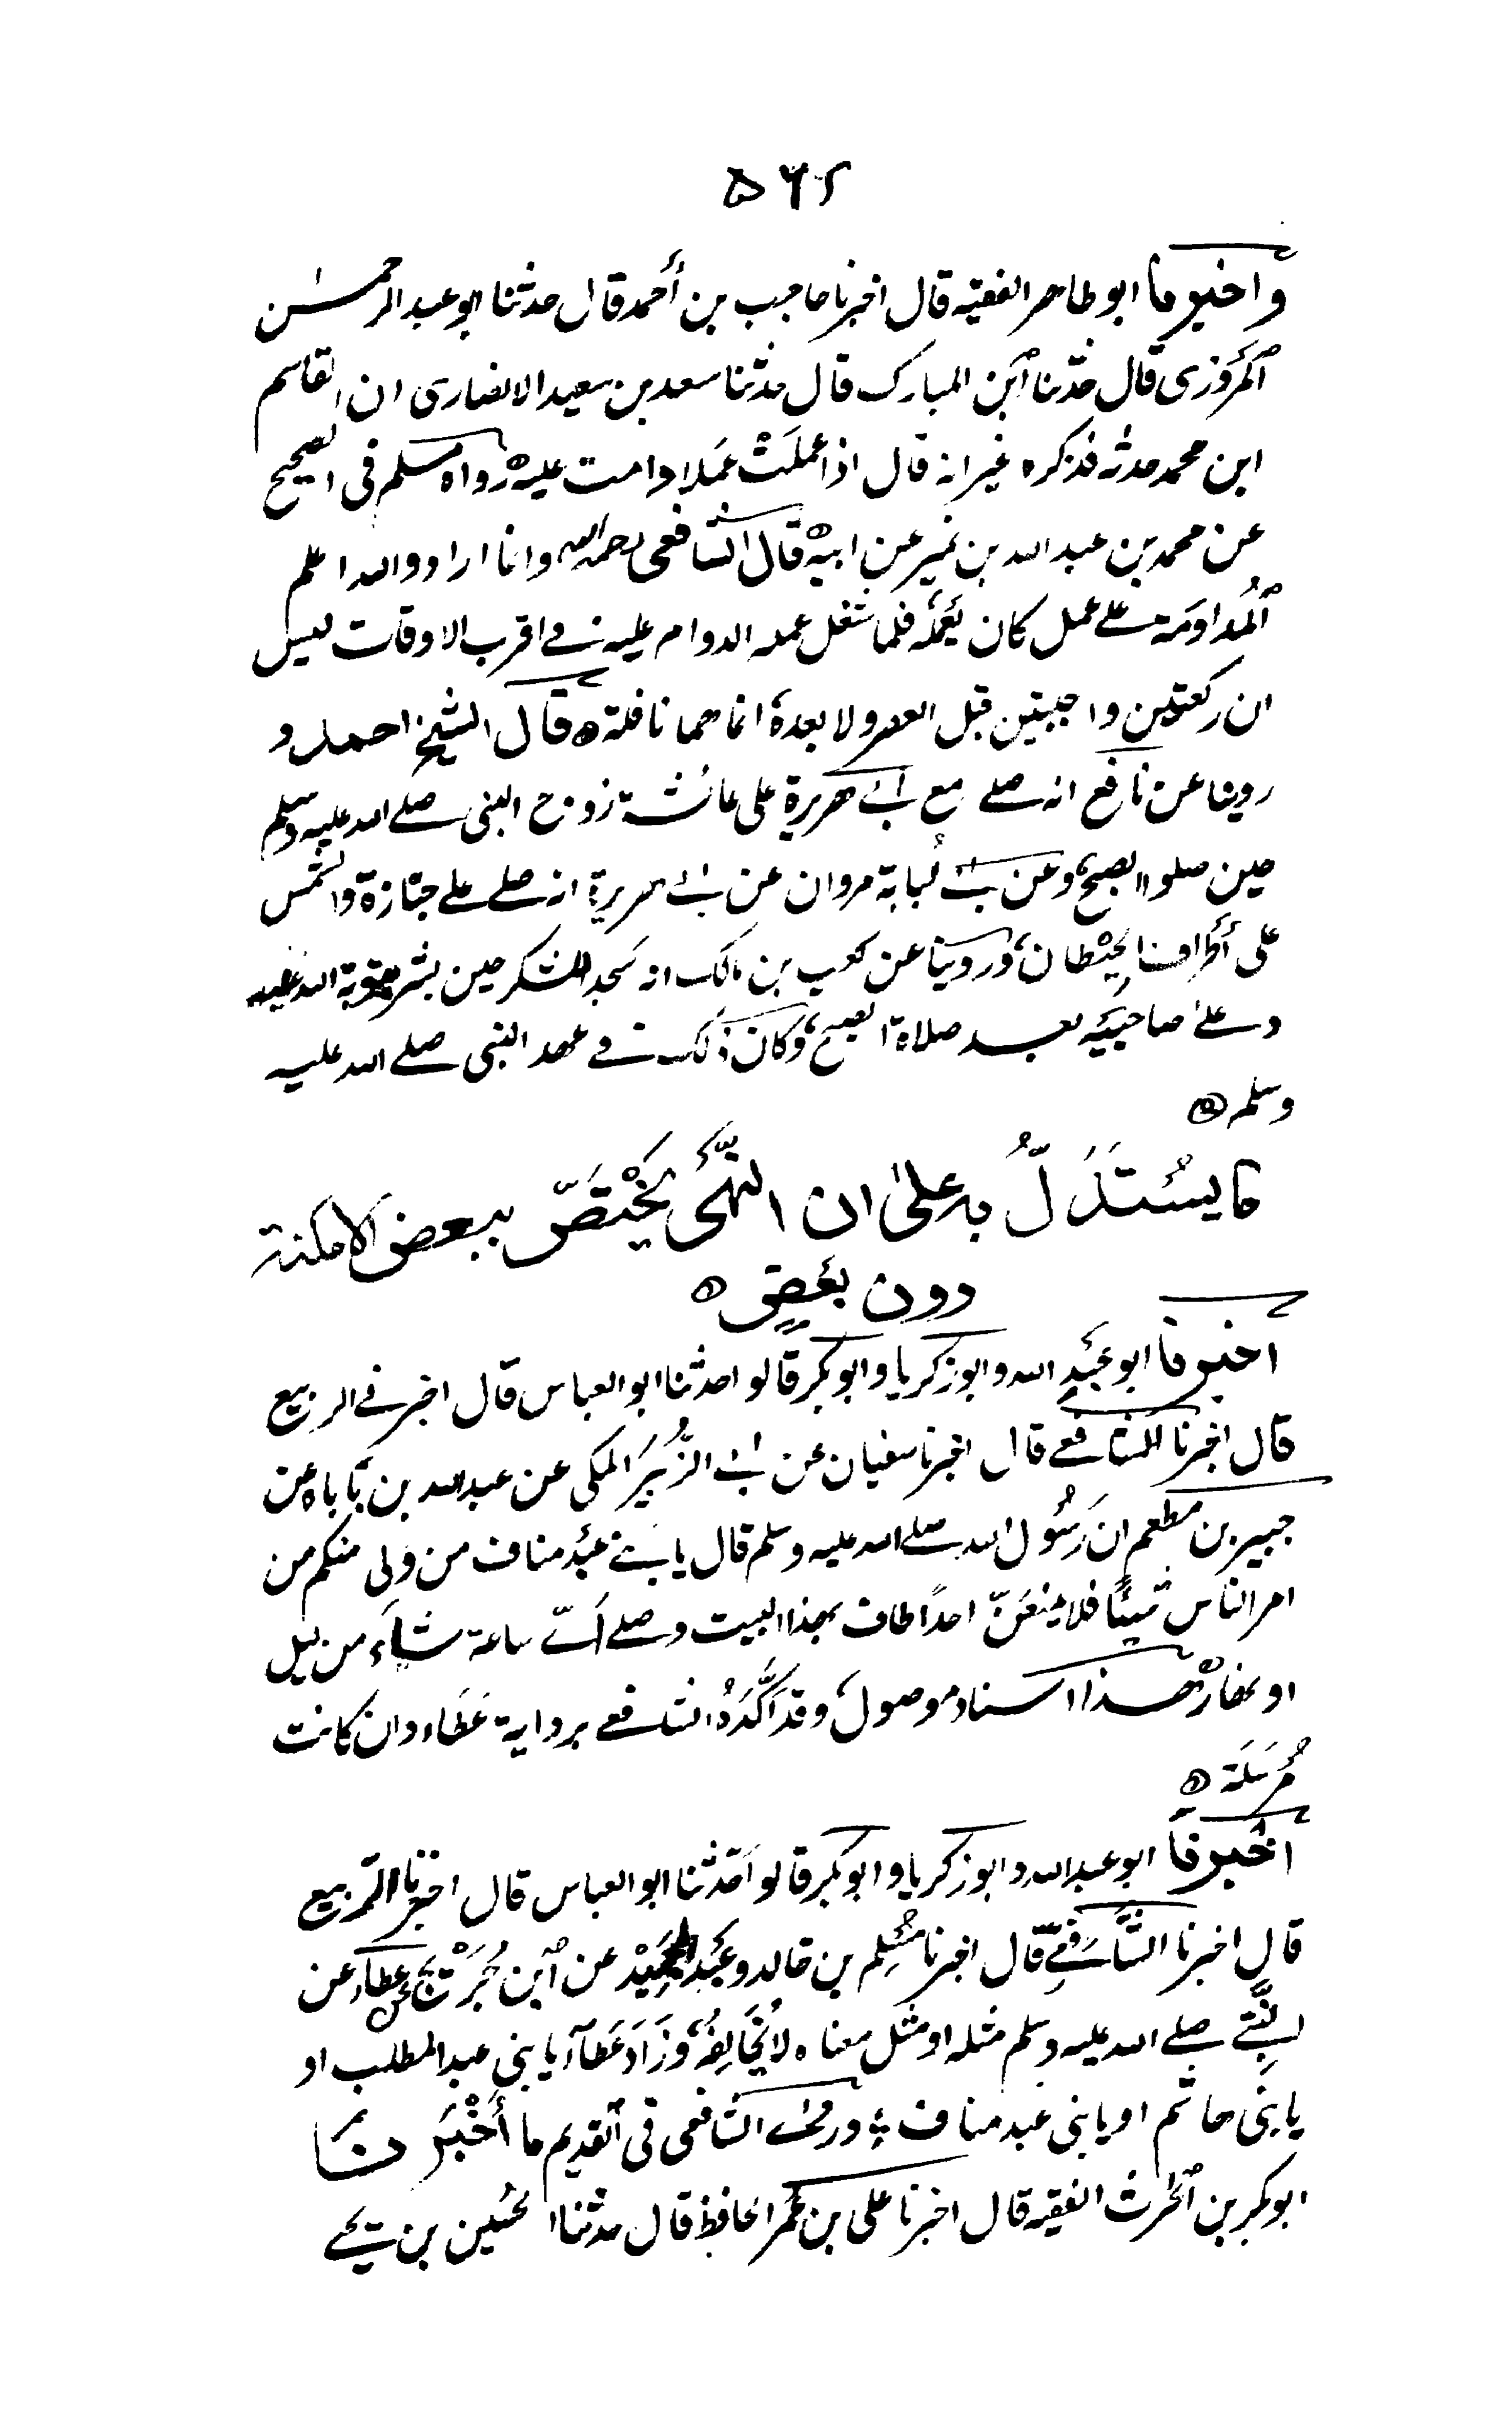 ٥٦٢
واخبرنا ابو طاهر الفقيه قال اخبرنا حاجب بن أحمد قال حدثنا ابو عبد الرحمن
المَروَزى قال حدّثنا ابن المبارك قال حدثنا سعد بن سعيد الانصارى ان القاسم
ابن محمد حدثه فذكره غير انه قال اذا عملَتْ عَملا دامت عليه ه رواه مسلم فى الصحيح
عن محمد بن عبد الله بن نمير عن ابيه ه قال الشافعى رحمه الله وانما اراد والله اعلم
المُداومَة على عمل كان يَعمَله فلما شغل عمله الدوام عليه فى اقرب الاوقات ليس
ان ركعتين واجبتين قبل العصر ولا بعدهُ انما هما نافلة ه قال الشيخ احمد و
روينا عن نافع انه صلى مع ابى هريرة على عائشة زوج النبى صلى الله عليه وسلم
حين صلوا الصبح، وعن ابى لُبابة مروان عن ابى هريرة انه صلى على جنازة والشمس
على أطراف الحِيْطان، وروينا عن كعب بن مالك انه سَجد للشكر حين بشر بتوبة الله عليه
وعلى صاحبَيه بعد صلاة الصبح، وكان ذلك فى عهد النبى صلى الله عليه
وسلم ه
ما يسُتَدَلُّ به على ان النَّهَى يَخْتَصّ ببعض الامكنة
دون بعَضٍ ه
اخبرنا ابو عَبْدِ الله وابو زكريا وابو بكر قالوا حدثنا ابو العباس قال اخبرنى الربيع
قال اخبرنا الشافعى قال اخبرنا سفيان عن ابى الزُّبَيَر المكى عن عبد الله بن بَاباه عن
جبير بن مطعم ان رَسُول الله صلى الله عليه وسلم قال يا بنى عَبْد مناف من وَلِى منكم من
امر الناس شيئًا فلا يمنعَنّ احدًا طاف بهذا البيت وصلى اَىّ ساعة شاءَ من ليل
او نهار ه هذا اسناد موصول، وقد اَكَّدَهُ الشافعى برواية عَطَاء وان كانت
مُرسَلة ه
اَخْبرنا ابو عبد الله وابو زكريا وابو بكر قالوا حَدثنا ابو العباس قال اخبرنا الرَّبيع
قال اخبرنا الشَّافعىّ قال اخبرنا مُسْلِم بن خالد وعَبْد المجِيْد عن ابن جُرَيْج عن عطاء عن
النَّبِى صلى الله عليه وسلم مثله او مثل معناه لا يُخَالِفهُ، وَزَادَ عَطاَء يا بنى عبد المطلب او
يا بَنى هاشم او يا بنى عبد مناف ، ورواه الشافعى فى القديم ما أَخْبَرَنَا
ابو بكر بن الحرث الفقيه قال اخبرنا على بن عُمَر الحافظ قال حدثنا الحُسَين بن يحيى